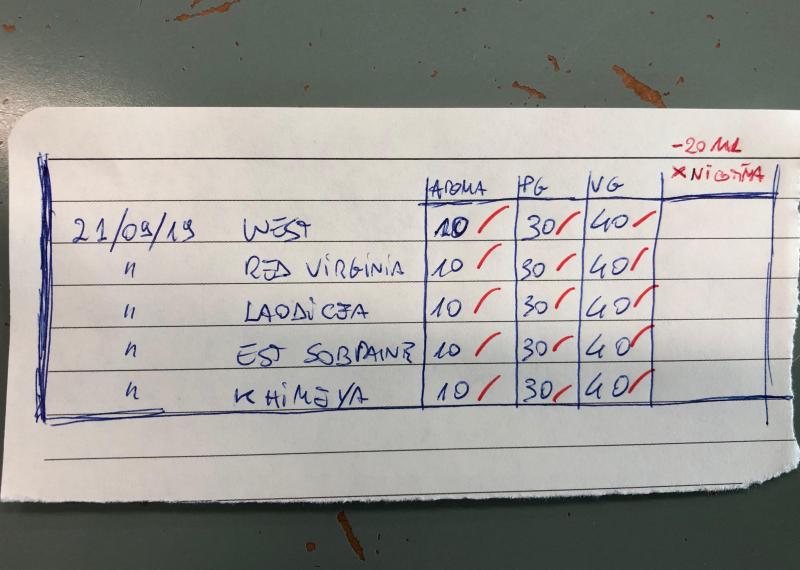 -20 ML
AROMA PG VG × NICOTINA
21/09/19 WEST 10 30 40
" RED VIRGINIA 10 30 40
" LAODICEA 10 30 40
" EST SOBRAINE 10 30 40
" KHIMEYA 10 30 40